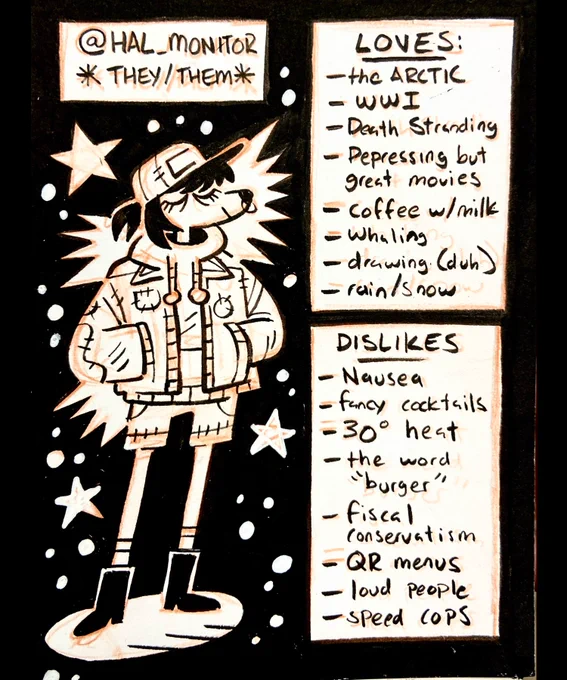 @HAL_MONITOR
* THEY/THEM *
LOVES:
- the ARCTIC
- WWI
- Death Stranding
- Depressing but
great movies
- coffee w/milk
- whaling
- drawing (duh)
- rain/snow
DISLIKES
- Nausea
- fancy cocktails
- 30° heat
- the word
"burger"
- fiscal
conservatism
- QR menus
- loud people
- speed COPS